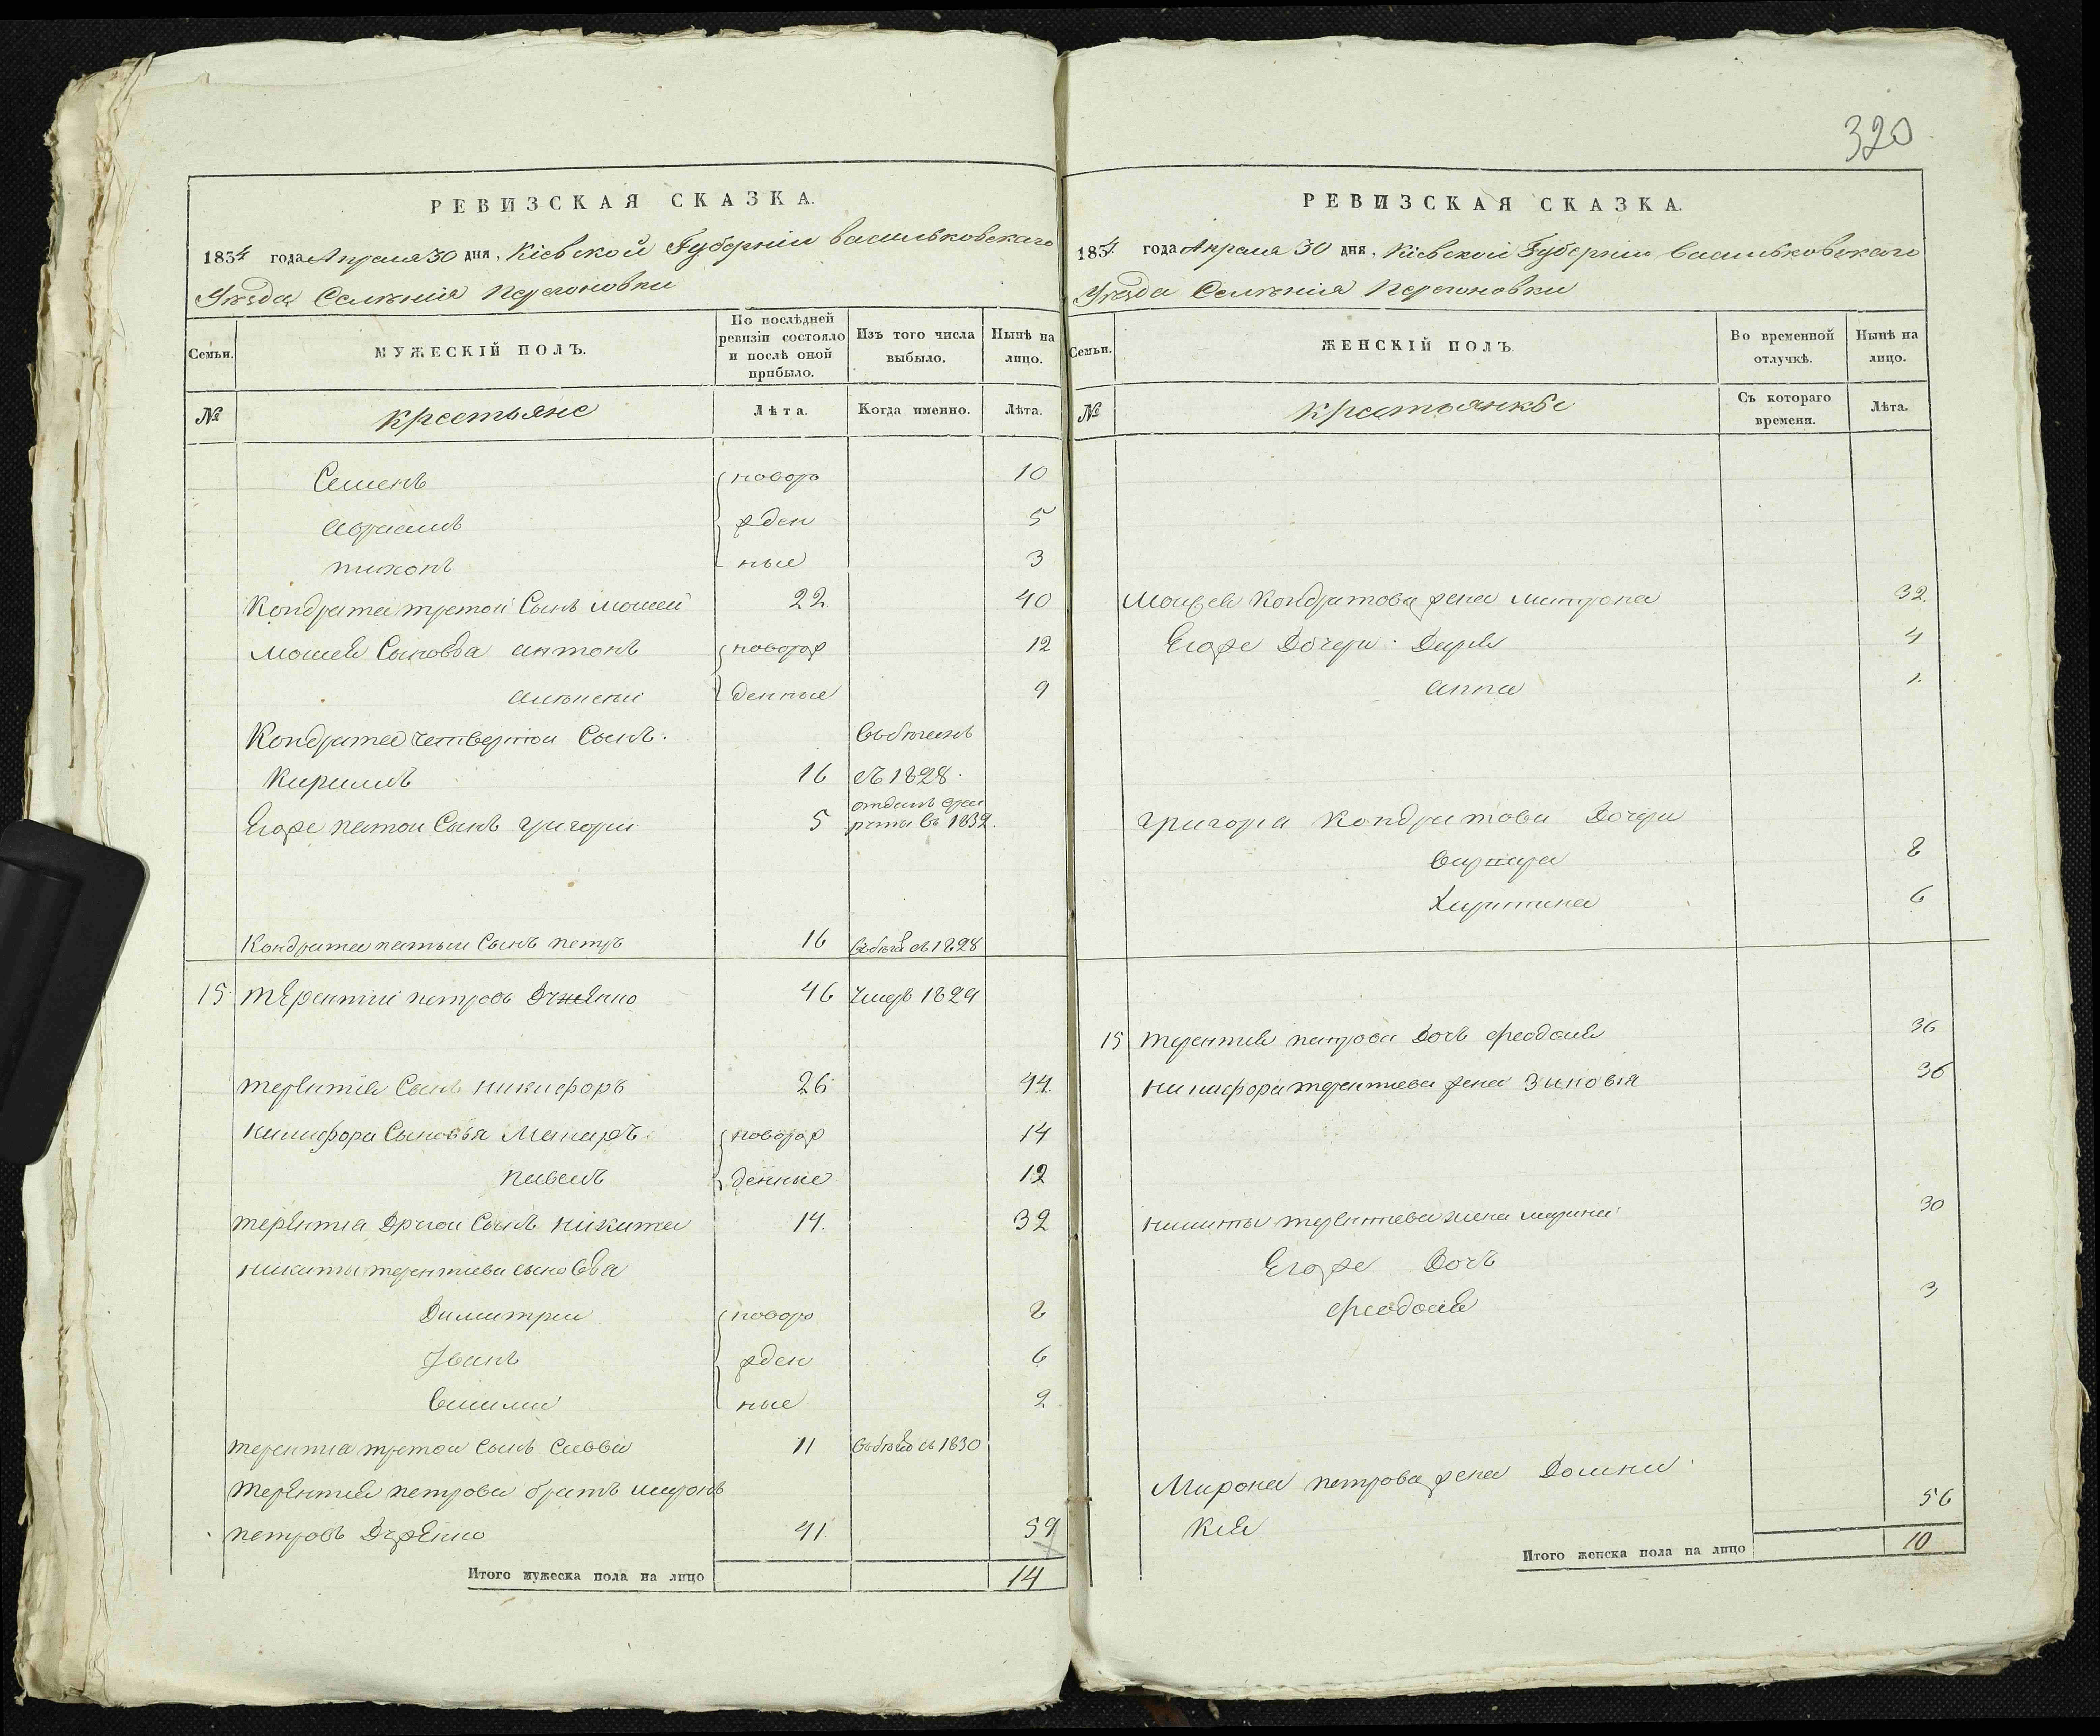 320
РЕВИЗСКАЯ СКАЗКА.
1834 года Апреля 30 дня, Кіевской Губерніи Васильковскаго
Уезда Селенія Перегоновки
Семьи.
МУЖЕСКІЙ ПОЛЪ.
По послѣдней ревизіи состояло и послѣ оной прибыло.
Изъ того числа выбыло.
Нынѣ на лицо.
№
крестьяне
Лѣта.
Когда именно.
Лѣта.
Семенъ новоро 10
Авраамъ жден 5
тихонъ ные 3
Кондрата третои Сынъ Мосей 22 40
Мосея Сыновья антонъ новорож 12
денные 9
Кондрата четвертои Сынъ.
Кирилъ 16 съ 1828.
Егоже пятои Сынъ григори 5 отданъ
въ 1832.
Кондрата пятыи Сынъ петръ 16 съ 1828
15 терентіи петровъ 46 умеръ 1829
терентия Сынъ никифоръ 26 44.
никифора Сыновья Макаръ новорож 14
павелъ денные 12
терентиа другои Сынъ никита 14. 32
никиты терентиева сыновья
Димитрии новоро 8
Іванъ жден 6
Василии ные 2
терентиа третои Сынъ Савва 11 съ 1830
терентия петрова братъ миронъ
петровъ 41. 59
Итого мужеска пола на лицо 14
РЕВИЗСКАЯ СКАЗКА.
1834 года Апреля 30 дня, Кіевской Губерніи Васильковскаго
Уезда Селенія Перегоновки
Семьи.
ЖЕНСКІЙ ПОЛЪ.
Во временной отлучкѣ.
Нынѣ на лицо.
№
крестьянкы
Съ котораго времени.
Лѣта.
Мосея Кондратова жена митрона 32.
Егоже Дочери. Дарья 4
анна 1.
григора Кондратова Дочери
варвара 8
Харитина 6
15 терентия петрова Дочь феодосия 36
никифора терентиева жена Зыновия 36
никиты терентиева жена марина 30
Егоже Дочь
феодосия 3
Мирона петрова жена Домни
кия 56
Итого женска пола на лицо 10